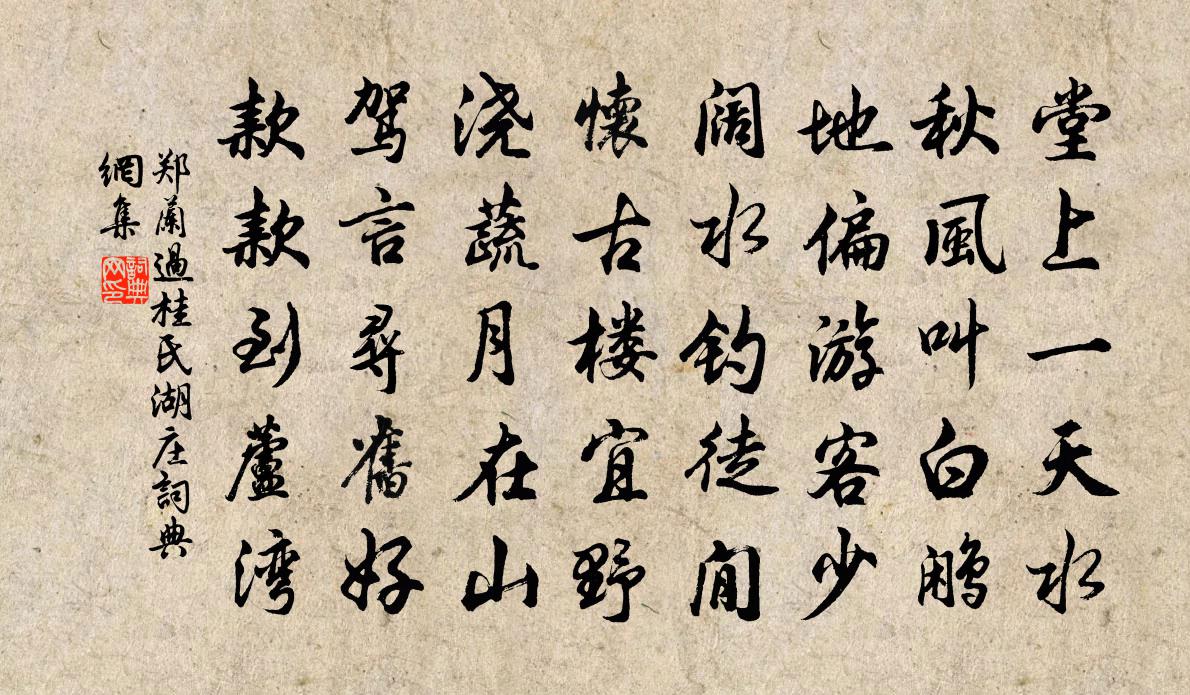 堂上一天水
秋風叫白鹇
地偏游客少
阔水钓徒閒
懷古楼宜野
浇蔬月在山
驾言尋舊好
款款到蘆湾
郑蘭過桂氏湖庄詞典
網集
詞典
网印